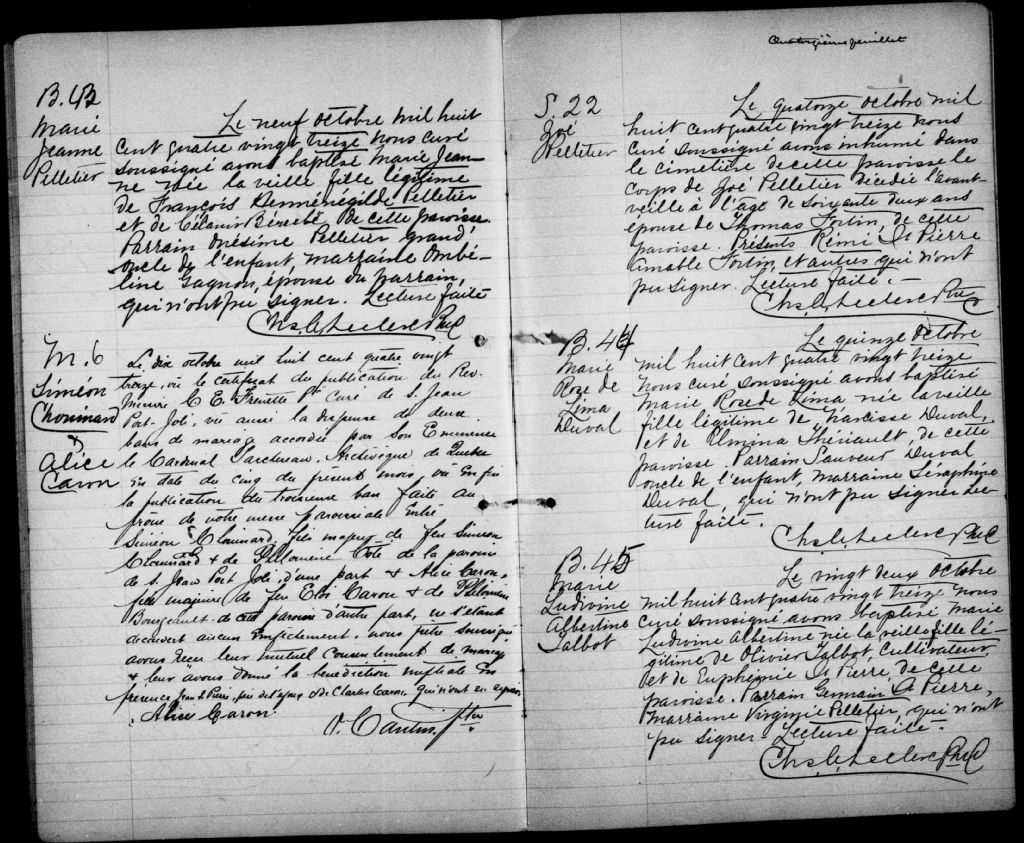 B. 43
Marie
Jeanne
Pelletier
Le neuf octobre mil huit
cent quatre vingt treize nous curé
soussigné avons baptisé Marie Jean-
ne née la veille fille légitime
de François Herménégilde Pelletier
et de Célanir Bérubé de cette paroisse.
Parrain Onésime Pelletier grand'
oncle de l'enfant, marraine Ombé-
line Gagnon, épouse du parrain,
qui n'ont pu signer. Lecture faite
Chs. G. Leclerc Ptre
M. 6
Siméon
Chouinard
&
Alice
Caron
Le dix octobre mil huit cent quatre vingt
treize, vu le certificat de publication du Rev.
Messire C. E. Frenette Pt curé de S. Jean
Port-Joli, vu aussi la dispense de deux
bans de mariage accordée par Son Eminence
le Cardinal Taschereau, Archevêque de Québec
en date du cinq du présent mois, vu enfin
la publication du troisième ban faite au
prone de notre messe paroissiale entre
Siméon Chouinard, fils majeur de feu Siméon
Chouinard & de Philomène Cole de la paroisse
de S. Jean Port Joli, d'une part & Alice Caron,
fille majeure de feu Eloi Caron & de Philomène
Bourgeault de cette paroisse d'autre part, ne s'étant
découvert aucun empêchement, nous prêtre soussigné
avons reçu leur mutuel consentement de mariage
& leur avons donné la bénédiction nuptiale en
présence Jean St Pierre, de l'époux & de Charles Caron, qui n'ont su signer
Alice Caron
Ptre
Quatorzième feuillet
S 22
Zoé
Pelletier
Le quatorze octobre mil
huit cent quatre vingt treize nous
curé soussigné avons inhumé dans
le cimetière de cette paroisse le
corps de Zoé Pelletier décédée l'avant-
veille à l'âge de soixante deux ans
épouse de Thomas Fortin, de cette
paroisse. Présents Rémi St Pierre
Amable Fortin, et autres qui n'ont
pu signer. Lecture faite. -
Chs. G. Leclerc Ptre
B. 44
Marie
Rose de
Lima
Duval
Le quinze octobre
mil huit cent quatre vingt treize
nous curé soussigné avons baptisé
Marie Rose de Lima née la veille
fille légitime de Narcisse Duval,
et de Elmina Thériault, de cette
paroisse. Parrain Sauveur Duval
oncle de l'enfant, marraine Séraphine
Duval, qui n'ont pu signer Lec-
ture faite.
Chs. G. Leclerc Ptre
B. 45
Marie
Ludivine
Albertine
Talbot
Le vingt deux octobre
mil huit cent quatre vingt treize nous
curé soussigné avons baptisé Marie
Ludivine Albertine née la veille fille lé-
gitime de Olivier Talbot, Cultivateur,
et de Euphémie St Pierre, de cette
paroisse. Parrain Germain St Pierre,
marraine Virginie Pelletier, qui n'ont
pu signer Lecture faite.
Chs. G. Leclerc Ptre